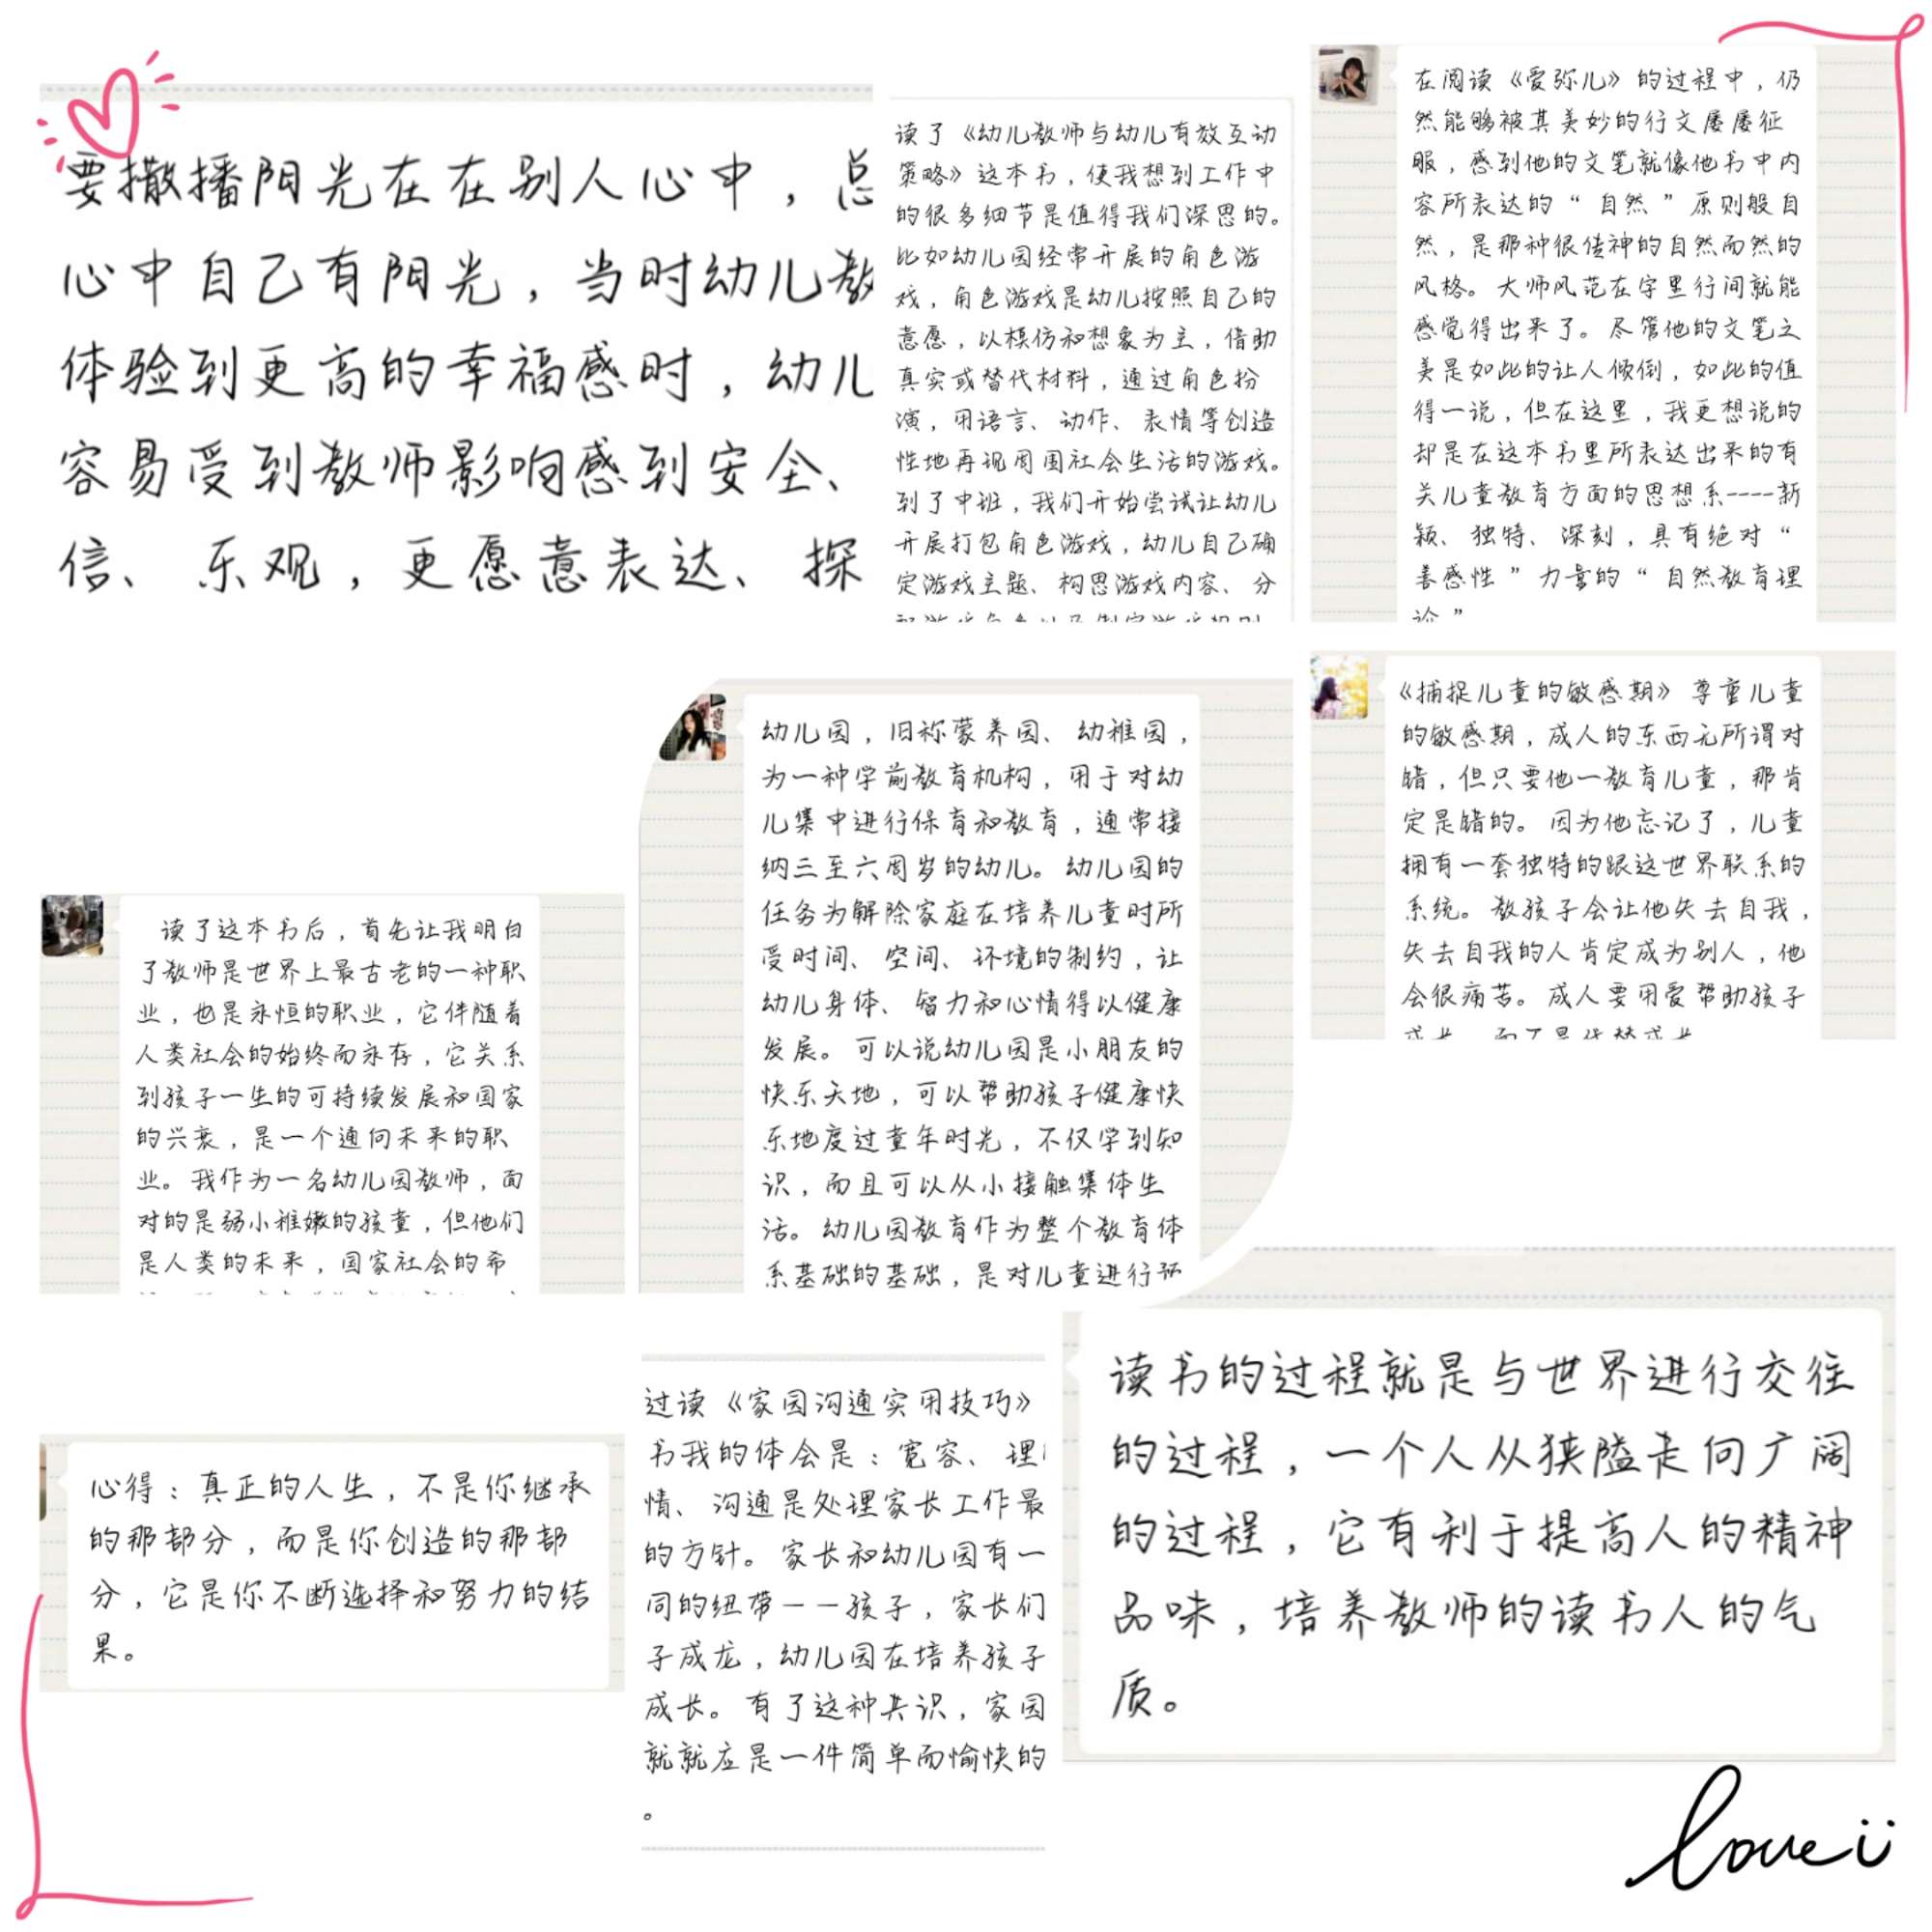 要撒播阳光在在别人心中，总
心中自己有阳光，当时幼儿教
体验到更高的幸福感时，幼儿
容易受到教师影响感到安全、
信、乐观，更愿意表达、探
读了《幼儿教师与幼儿有效互动
策略》这本书，使我想到工作中
的很多细节是值得我们深思的。
比如幼儿园经常开展的角色游
戏，角色游戏是幼儿按照自己的
意愿，以模仿和想象为主，借助
真实或替代材料，通过角色扮
演，用语言、动作、表情等创造
性地再现周围社会生活的游戏。
到了中班，我们开始尝试让幼儿
开展打包角色游戏，幼儿自己确
定游戏主题、构思游戏内容、分
在阅读《爱弥儿》的过程中，仍
然能够被其美妙的行文屡屡征
服，感到他的文笔就像他书中内
容所表达的“自然”原则般自
然，是那种很传神的自然而然的
风格。大师风范在字里行间就能
感觉得出来了。尽管他的文笔之
美是如此的让人倾倒，如此的值
得一说，但在这里，我更想说的
却是在这本书里所表达出来的有
关儿童教育方面的思想系----新
颖、独特、深刻，具有绝对“
善感性”力量的“自然教育理
论”
《捕捉儿童的敏感期》尊重儿童
的敏感期，成人的东西无所谓对
错，但只要他一教育儿童，那肯
定是错的。因为他忘记了，儿童
拥有一套独特的跟这世界联系的
系统。教孩子会让他失去自我，
失去自我的人肯定成为别人，他
会很痛苦。成人要用爱帮助孩子
幼儿园，旧称蒙养园、幼稚园，
为一种学前教育机构，用于对幼
儿集中进行保育和教育，通常接
纳三至六周岁的幼儿。幼儿园的
任务为解除家庭在培养儿童时所
受时间、空间、环境的制约，让
幼儿身体、智力和心情得以健康
发展。可以说幼儿园是小朋友的
快乐天地，可以帮助孩子健康快
乐地度过童年时光，不仅学到知
识，而且可以从小接触集体生
活。幼儿园教育作为整个教育体
系基础的基础，是对儿童进行预
读了这本书后，首先让我明白
了教师是世界上最古老的一种职
业，也是永恒的职业，它伴随着
人类社会的始终而永存，它关系
到孩子一生的可持续发展和国家
的兴衰，是一个通向未来的职
业。我作为一名幼儿园教师，面
对的是弱小稚嫩的孩童，但他们
是人类的未来，国家社会的希
心得：真正的人生，不是你继承
的那部分，而是你创造的那部
分，它是你不断选择和努力的结
果。
过读《家园沟通实用技巧》
书我的体会是：宽容、理
情、沟通是处理家长工作最
的方针。家长和幼儿园有一
同的纽带——孩子，家长们
子成龙，幼儿园在培养孩子
成长。有了这种共识，家园
就就应是一件简单而愉快的
。
读书的过程就是与世界进行交往
的过程，一个人从狭隘走向广阔
的过程，它有利于提高人的精神
品味，培养教师的读书人的气
质。
love